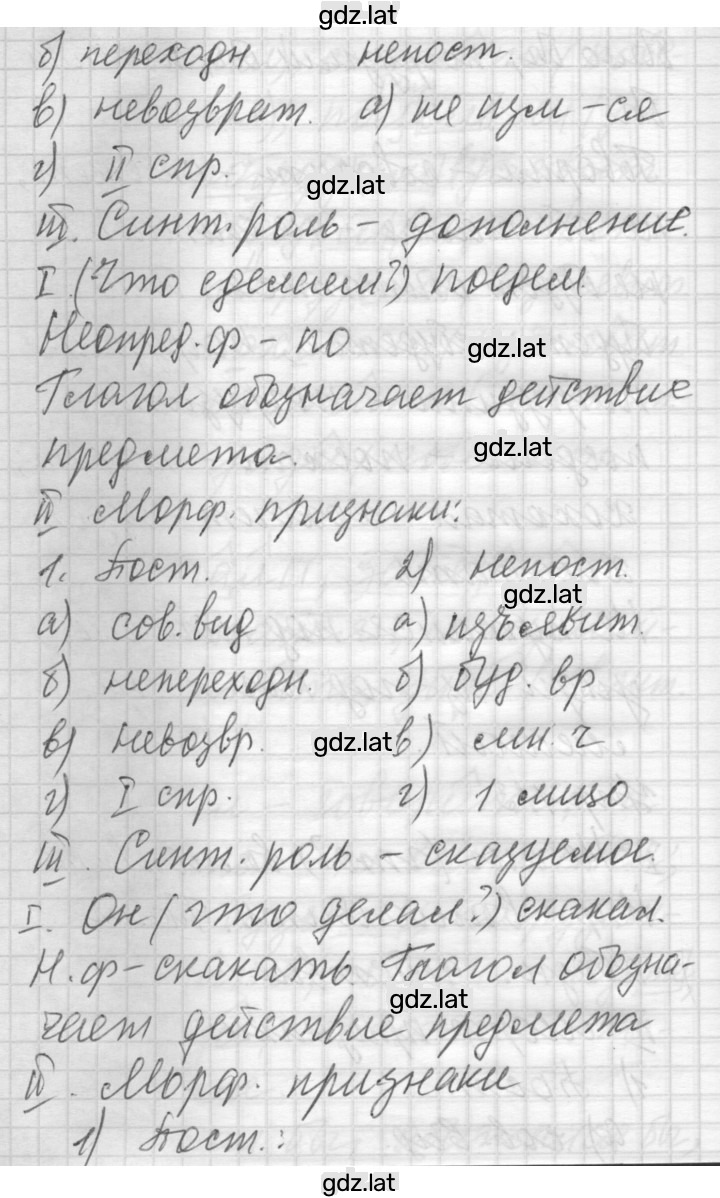 gdz.lat
б) переходн непост.
в) невозврат. а) не изм-ся
г) II спр.
gdz.lat
III. Синт. роль - дополнение.
I. (Что сделаем?) поедем.
Неопред. ф - по
gdz.lat
Глагол обозначает действие
предмета.
gdz.lat
II Морф. признаки:
1. Пост. 2) непост.
gdz.lat
а) сов. вид а) изъявит.
б) непереходн. б) буд. вр
в) невозвр. gdz.lat в) мн. ч
г) I спр. г) 1 лицо
III. Синт. роль - сказуемое.
I. Он (что делал?) скакал.
Н. ф - скакать. Глагол обозна-
gdz.lat
чает действие предмета
II. Морф. признаки
1) Пост.:
gdz.lat